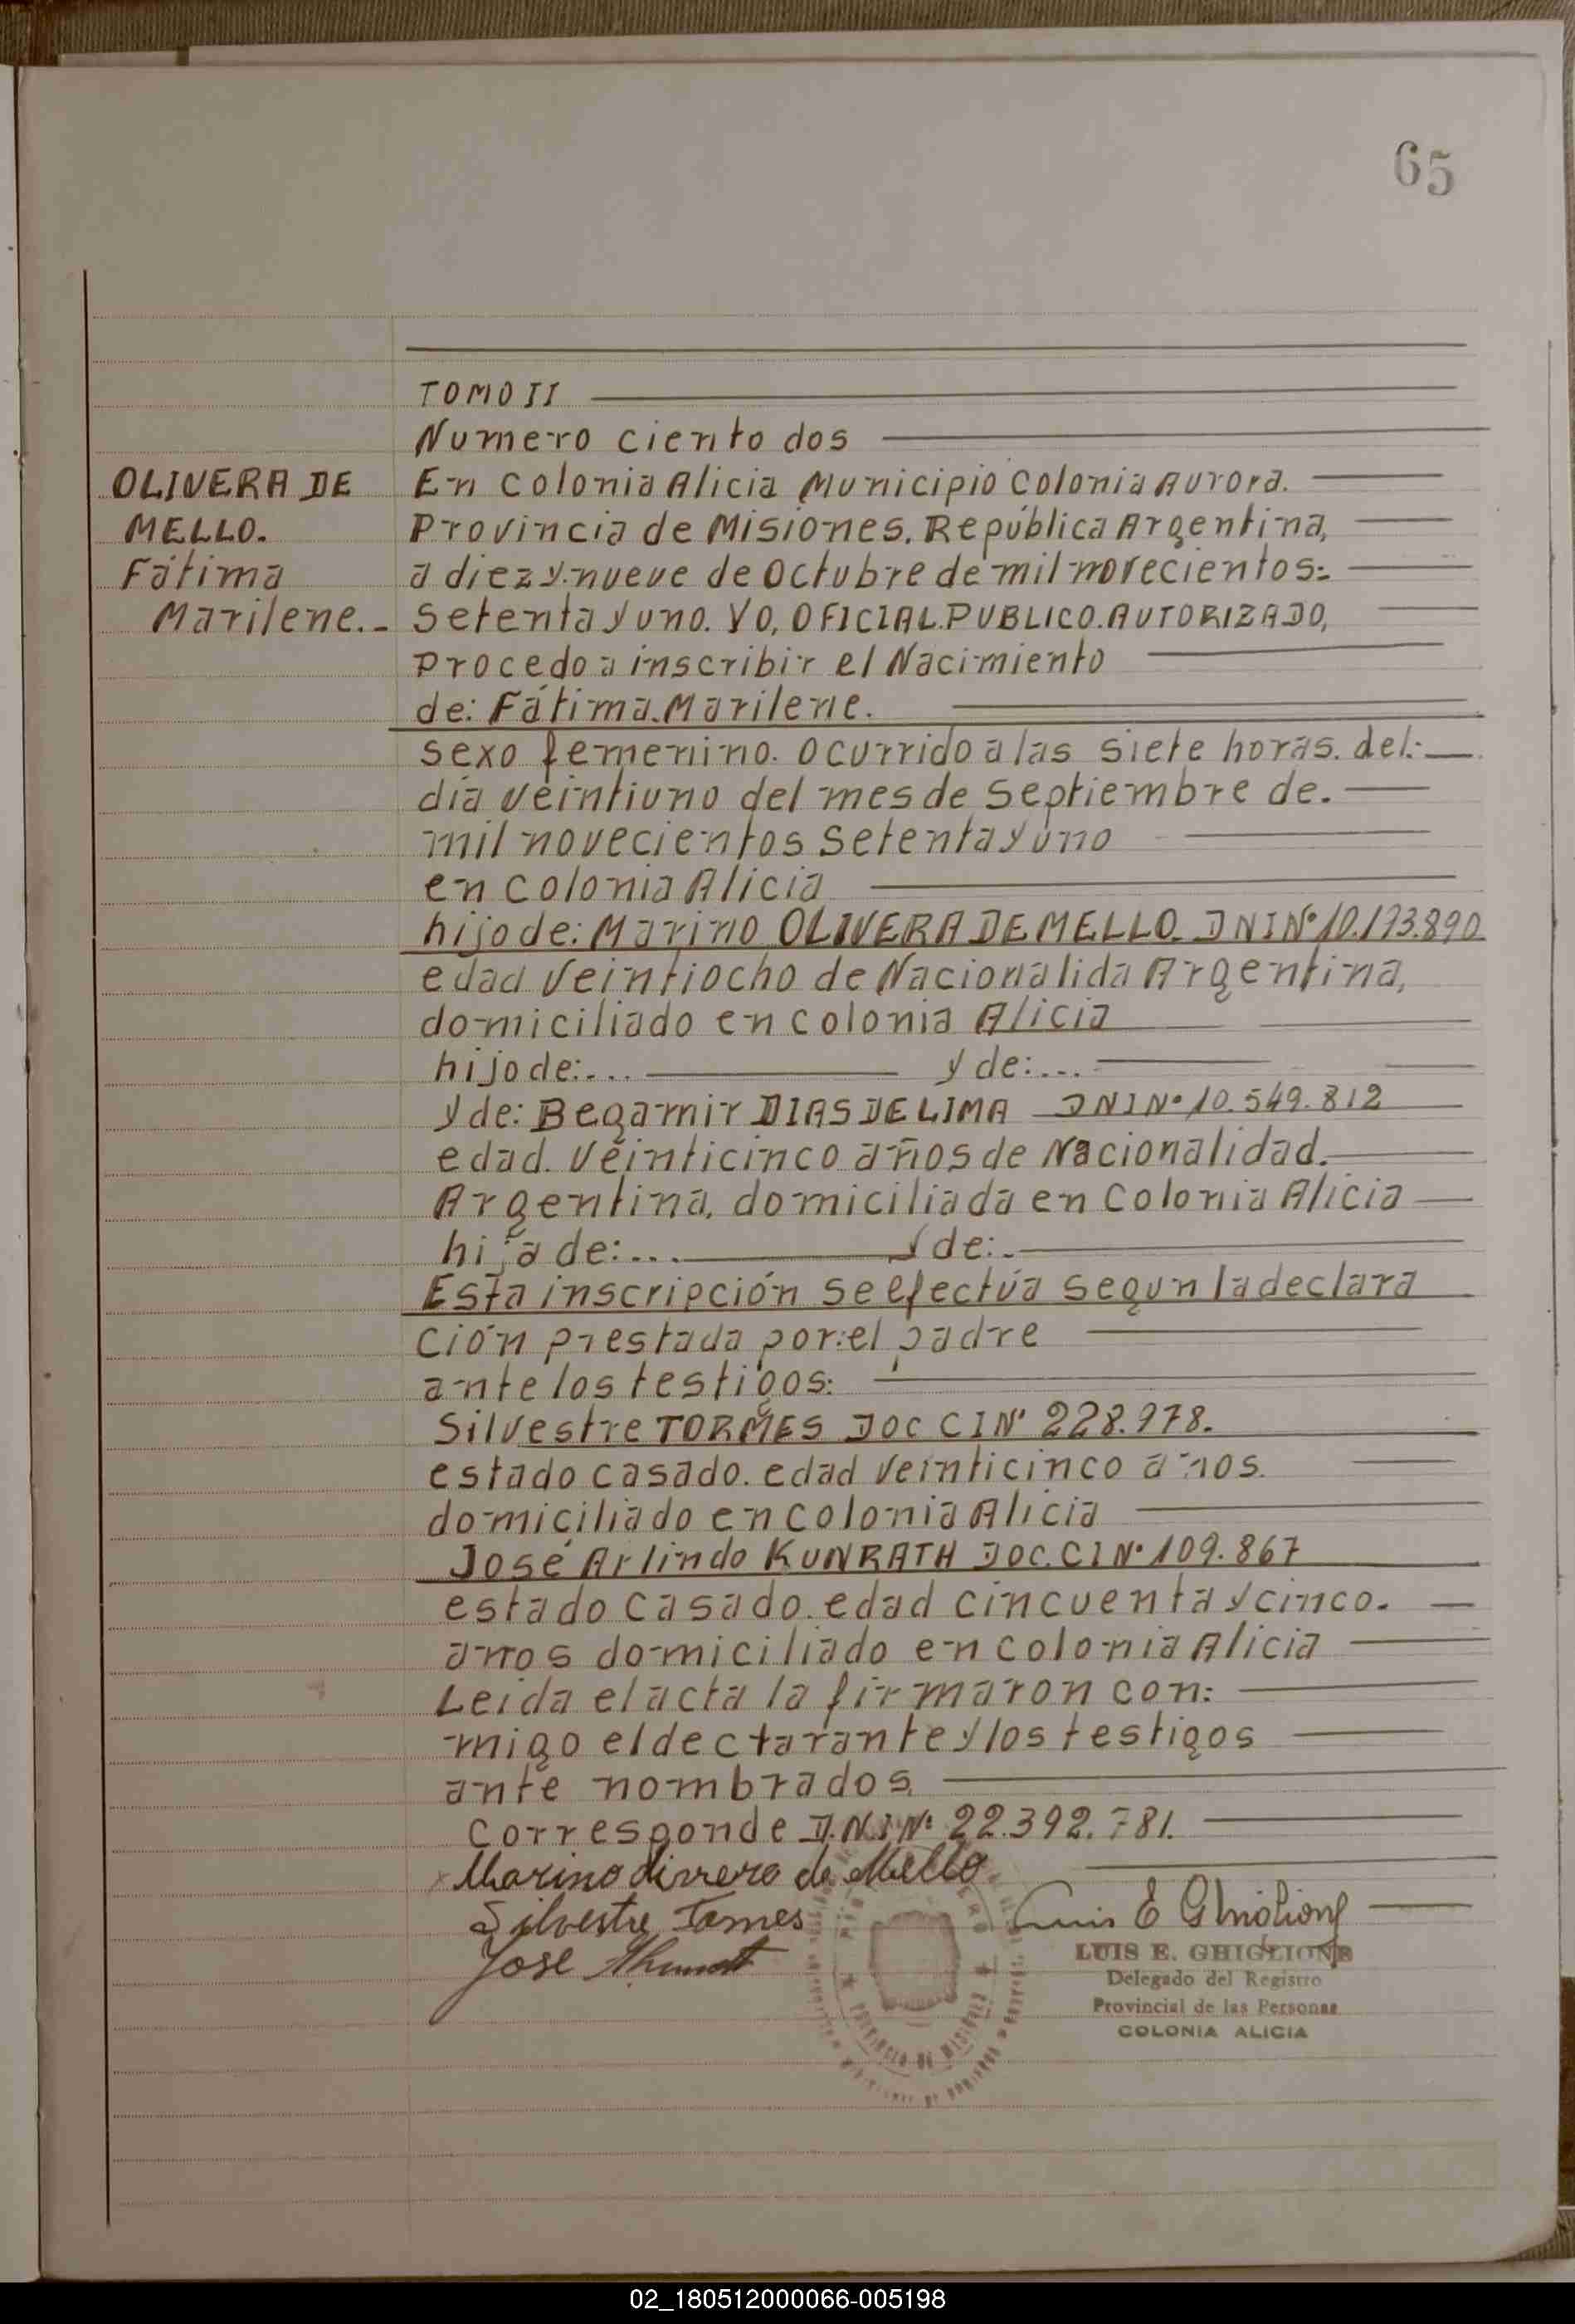 65
TOMO II
Numero ciento dos
OLIVERA DE
MELLO.
Fátima
Marilene.-
En Colonia Alicia Municipio Colonia Aurora.
Provincia de Misiones. República Argentina,
a diez y nueve de Octubre de mil novecientos:
setenta y uno. YO, OFICIAL PUBLICO. AUTORIZADO,
procedo a inscribir el Nacimiento
de: Fátima Marilene.
sexo femenino. ocurrido a las siete horas. del:
día veintiuno del mes de septiembre de.
mil novecientos setenta y uno
en Colonia Alicia
hijo de: Marino OLIVERA DE MELLO. DNI Nº 10.173.890
edad veintiocho de Nacionalida Argentina,
domiciliado en colonia Alicia
hijo de:... y de:...
y de: Begamir DIAS DE LIMA DNI Nº 10.549.812
edad. veinticinco años de Nacionalidad.
Argentina, domiciliada en Colonia Alicia
hija de:... y de:.
Esta inscripción se efectúa segun la declara
ción prestada por:el padre
ante los testigos:
Silvestre TORMES DOC CI Nº 228.978.
estado casado. edad veinticinco años.
domiciliado en colonia Alicia
José Arlindo KUNRATH DOC. CI Nº 109.867
estado casado. edad cincuenta y cinco.
años domiciliado en colonia Alicia
Leida el acta la firmaron con:
migo el declarante y los testigos
ante nombrados.
Corresponde D.N.I Nº 22.392.781.
Marino de Mello
Silvestre Tormes
Jose
Luis E Ghiglione
LUIS E. GHIGLIONE
Delegado del Registro
Provincial de las Personas
COLONIA ALICIA
PROVINCIA DE MISIONES
02_180512000066-005198